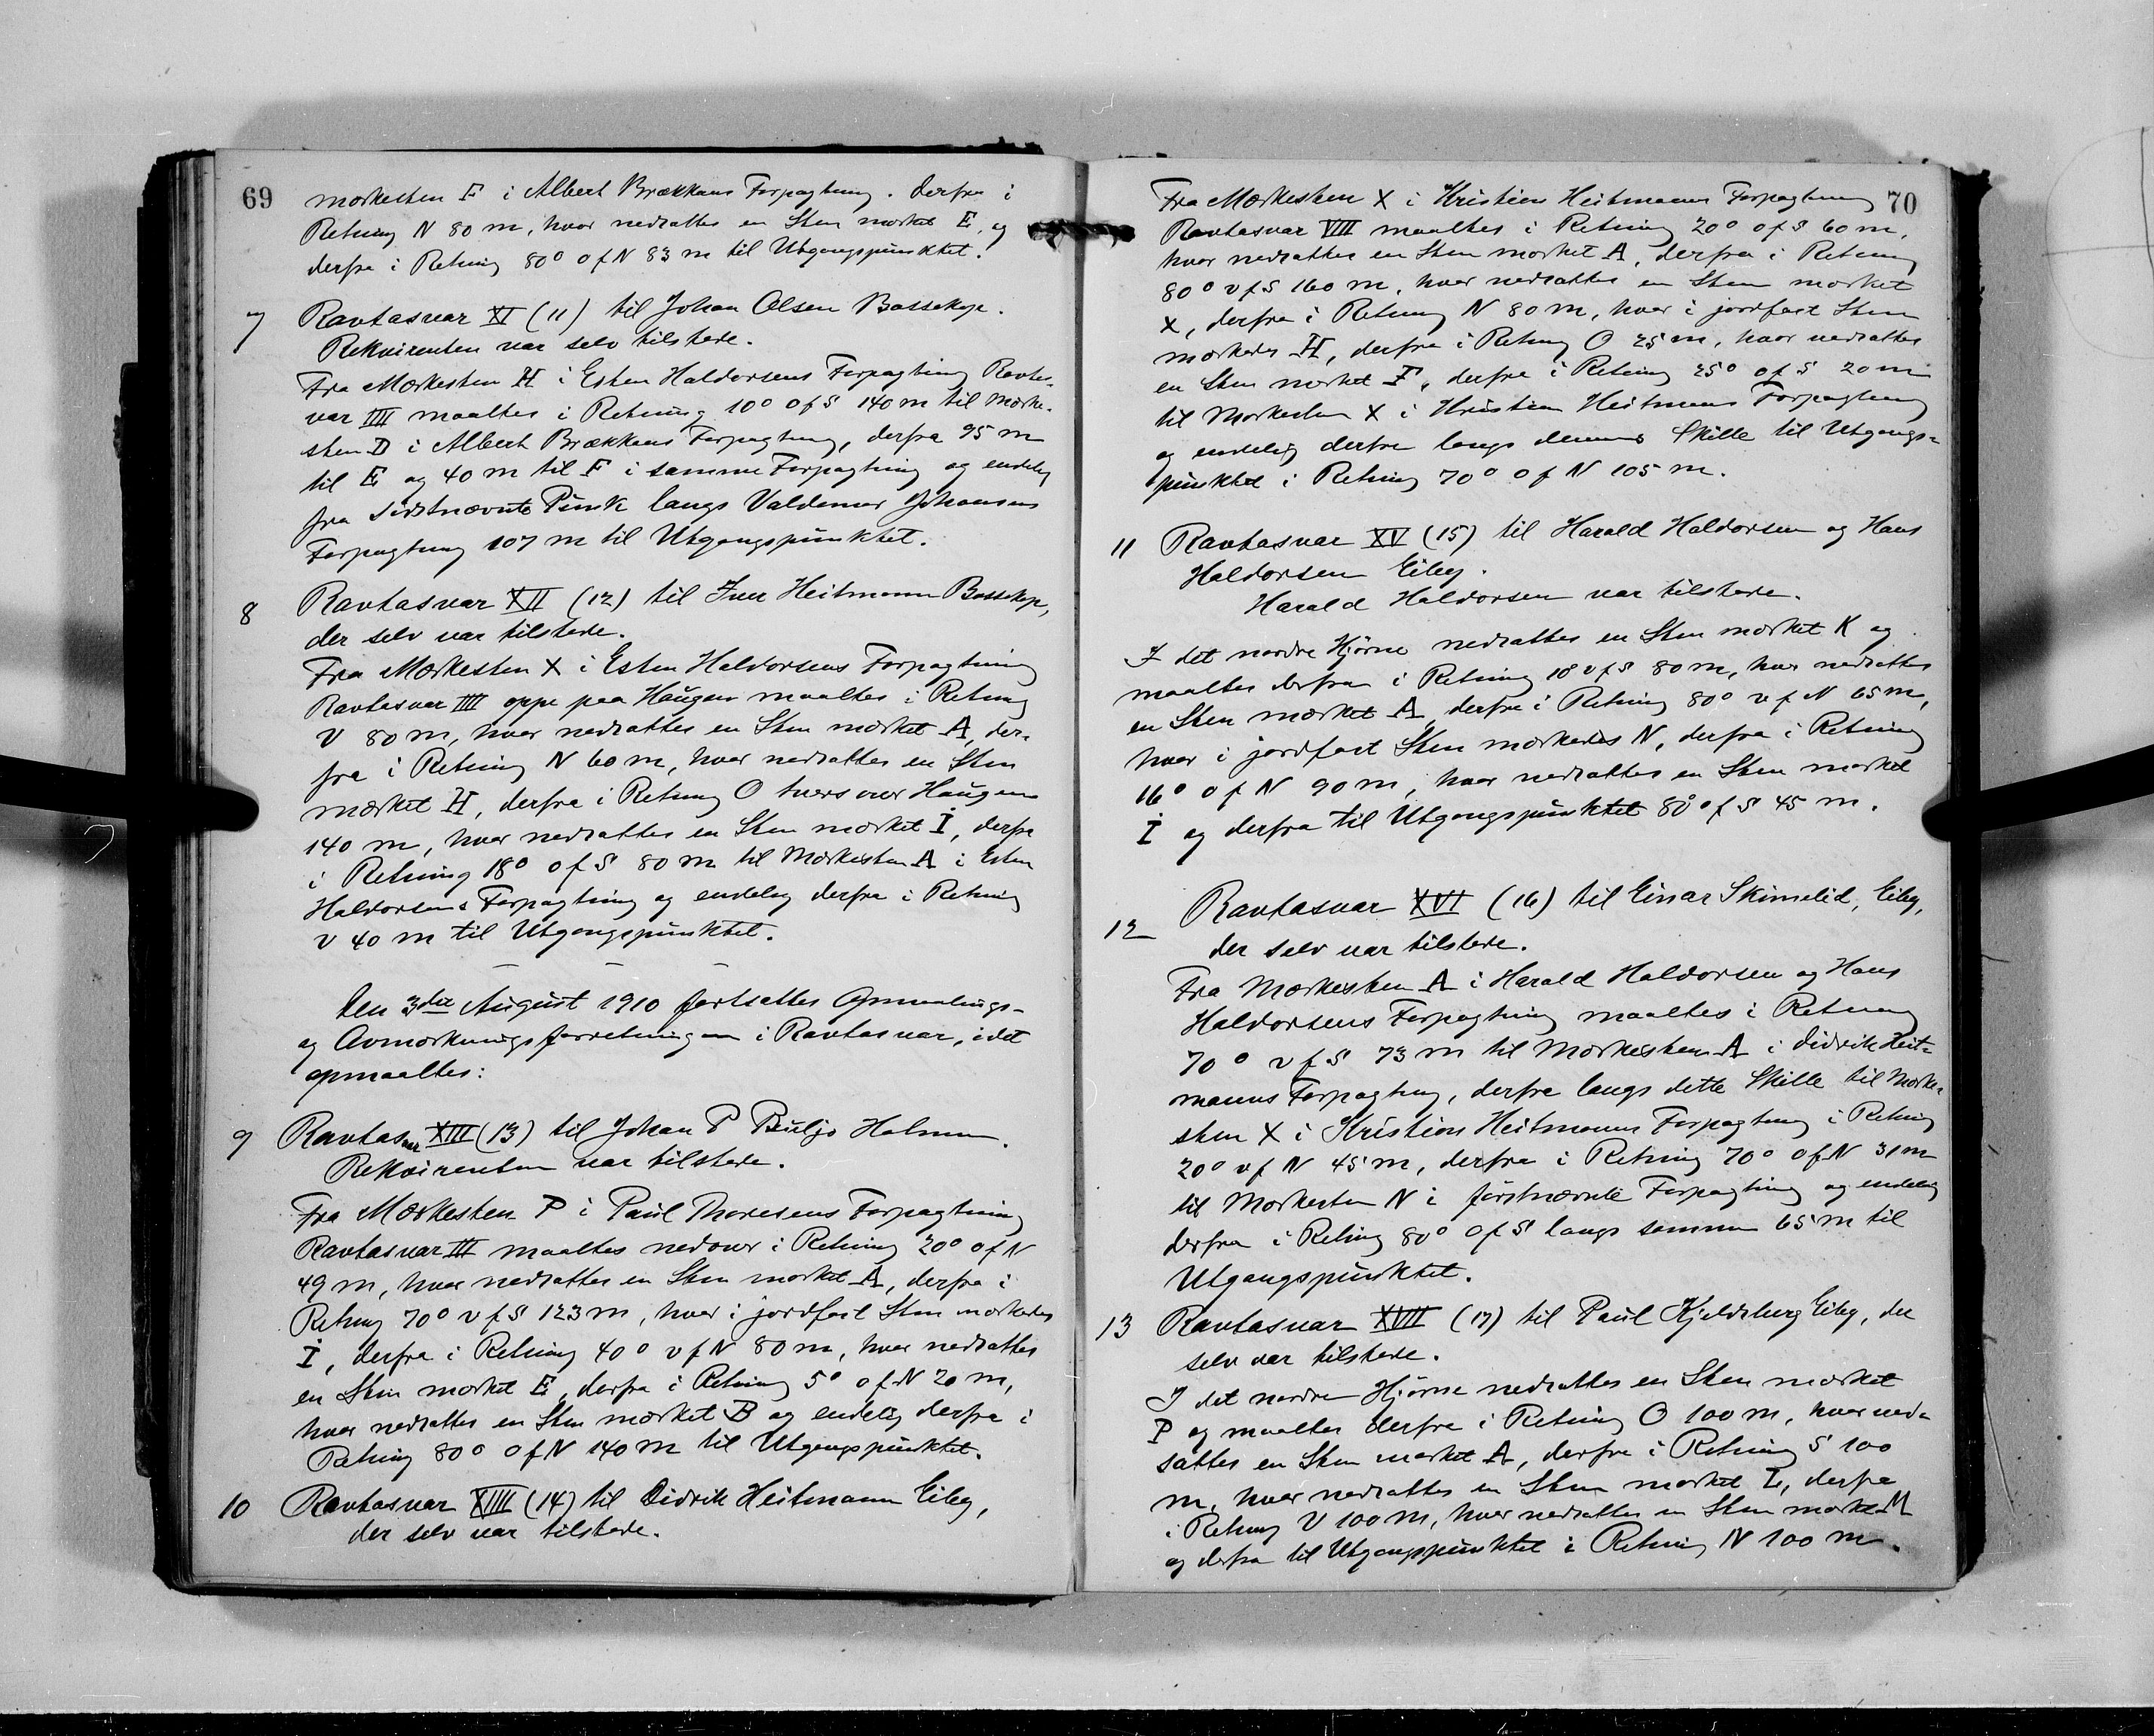 69
mærkesten F i Albert Brækkans Forpagtning. Derfra i
Retning N 80 m, hvor nedsattes en Sten mærket E, og
derfra i Retning 80° O f N 83 m til Utgangspunktet.
7 Ravtasvar XI (11) til Johan Olsen Bossekop.
Rekvirenten var selv tilstede.
Fra Mærkesten H i Esten Haldorsens Forpagtning Ravtas-
var IIII maaltes i Retning 10° O f S 140 m til Mærke-
sten D i Albert Brækkans Forpagtning, derfra 95 m
til E og 40 m til F i samme Forpagtning og endelig
fra sidstnævnte Punk langs Valdemar Johansens
Forpagtning 107 m til Utgangspunktet.
8 Ravtasvar XII (12) til Iver Heitmann Bossekop,
der selv var tilstede.
Fra Mærkesten X i Esten Haldorsens Forpagtning
Ravtasvar IIII oppe paa Haugen maaltes i Retning
V 80 m, hvor nedsattes en Sten mærket A, der-
fra i Retning N 60 m, hvor nedsattes en Sten
mærket H, derfra i Retning O tvers over Haugen
140 m, hvor nedsattes en Sten mærket I, derfra
i Retning 18° O f S 80 m til Mærkesten A i Esten
Haldorsens Forpagtning og endelig derfra i Retning
V 40 m til Utgangspunktet.
Den 3die August 1910 fortsattes Opmaalings-
og Avmærkningsforretningen i Ravtasvar, idet
opmaaltes:
9 Ravtasvar XIII (13) til Johan P Buljo Holmen.
Rekvirenten var tilstede.
Fra Mærkesten P i Paul Thoresens Forpagtning
Ravtasvar III maaltes nedover i Retning 20° O f N
49 m, hvor nedsattes en Sten mærket A, derfra i
Retning 70° V f S 123 m, hvor i jordfast Sten mærkedes
I, derfra i Retning 40° V f N 80 m, hvor nedsattes
en Sten mærket E, derfra i Retning 5° O f N 20 m,
hvor nedsattes en Sten mærket B og endelig derfra i
Retning 80° O f N 140 m til Utgangspunktet.
10 Ravtasvar XIIII (14) til Didrik Heitmann Eiby,
der selv var tilstede.
70
Fra Mærkesten X i Kristian Heitmanns Forpagtning
Ravtasvar VIII maaltes i Retning 20° O f S 60 m,
hvor nedsattes en Sten mærket A, derfra i Retning
80° V f S 160 m, hvor nedsattes en Sten mærket
X, derfra i Retning N 80 m, hvor i jordfast Sten
mærkedes H, derfra i Retning O 25 m, hvor nedsattes
en Sten mærket F, derfra i Retning 25° O f S 20 m
til Mærkesten X i Kristian Heitmanns Forpagtning
og endelig derfra langs dennes Skille til Utgangs-
punktet i Retning 70° O f N 105 m.
11 Ravtasvar XV (15) til Harald Haldorsen og Hans
Haldorsen Eiby.
Harald Haldorsen var tilstede.
I det nordre Hjørne nedsattes en Sten mærket K og
maaltes derfra i Retning 18 V f S 80 m, hvor nedsattes
en Sten mærket A, derfra i Retning 80° V f N 65 m,
hvor i jordfast Sten mærkedes N, derfra i Retning
16° O f N 90 m, hvor nedsattes en Sten mærket
I og derfra til Utgangspunktet 80° O f S 45 m.
12 Ravtasvar XVI (16) til Einar Skimelid, Eiby,
der selv var tilstede.
Fra Mærkesten A i Harald Haldorsen og Hans
Haldorsens Forpagtning maaltes i Retning
70° V f S 73 m til Mærkesten A i Didrik Heit-
manns Forpagtning, derfra langs dette Skille til Mærke-
sten X i Kristian Heitmanns Forpagtning i Retning
20° V f N 45 m, derfra i Retning 70° O f N 31 m
til Mærkesten N i førstnævnte Forpagtning og endelig
derfra i Retning 80° O f S langs samme 65 m til
Utgangspunktet.
13 Ravtasvar XVII (17) til Paul Kjeldsberg Eiby, der
selv var tilstede.
I det nordre Hjørne nedsattes en Sten mærket
P og maaltes derfra i Retning O 100 m, hvor ned-
sattes en Sten mærket A, derfra i Retning S 100
m, hvor nedsattes en Sten mærket L, derfra
i Retning V 100 m, hvor nedsattes en Sten mærket M
og derfra til Utgangspunktet i Retning N 100 m.